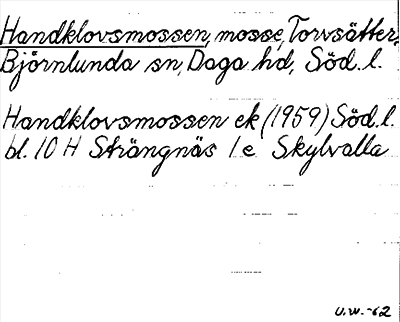 Handklovsmossen, mosse, Torvsätter,
Björnlunda sn, Daga hd, Söd. l.
Handklovsmossen ek (1959) Söd. l.
bl. 10 H Strängnäs 1 e Skylvalla
U.W.-62